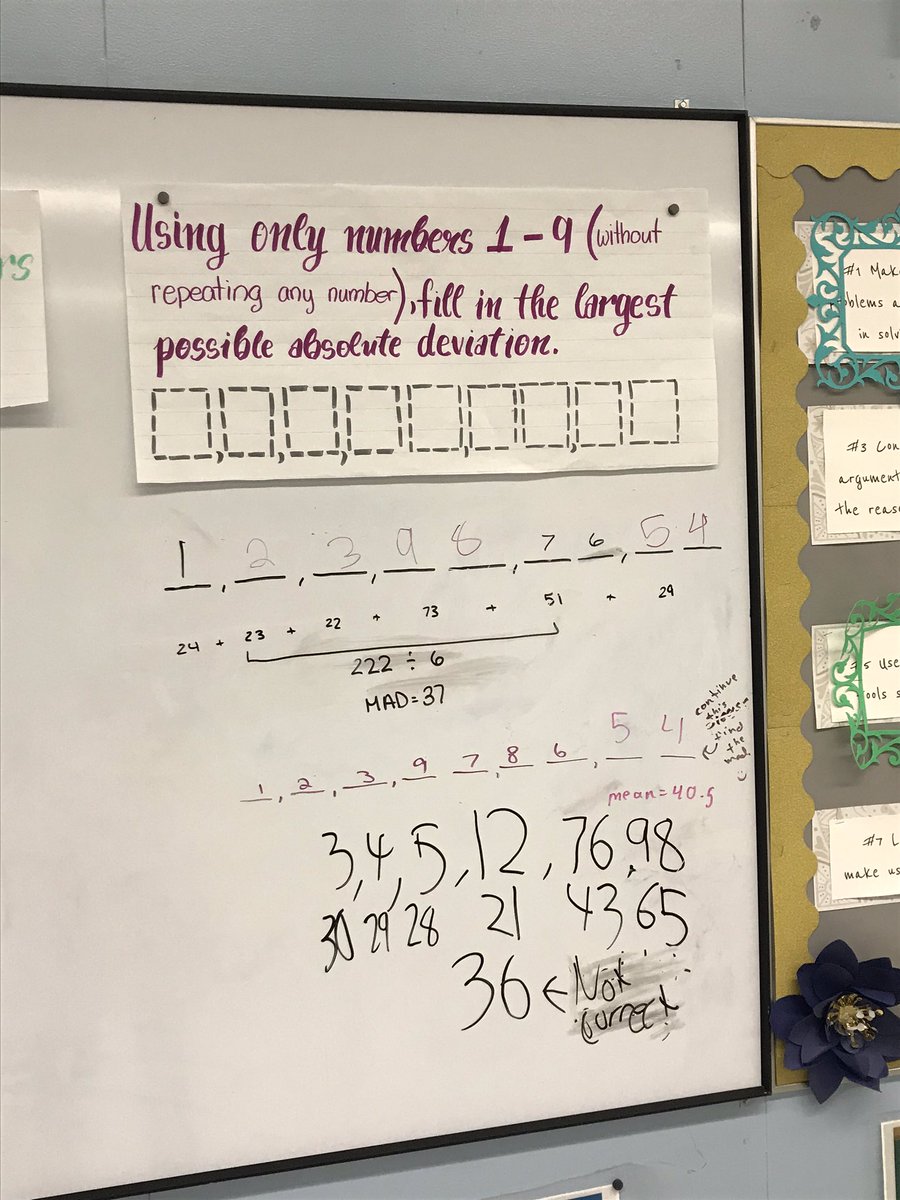 rs
Using only numbers 1-9 (without
repeating any number), fill in the largest
possible absolute deviation.
, , , , ,
1, 2, 3, 9 8, 7 6, 5 4
24 + 23 + 22 + 73 + 51 + 29
222 ÷ 6
MAD=37
continue
this
find
the
mad
1, 2, 3, 9 7, 8 6, 5 4
mean=40.5
3, 4, 5, 12, 76, 98
30 29 28 21 43 65
36 ← Not
currect
#1 Mak
oblems a
in solv
#3 Con
argument
the reas
#5 Use
ools s
#7 L
make us